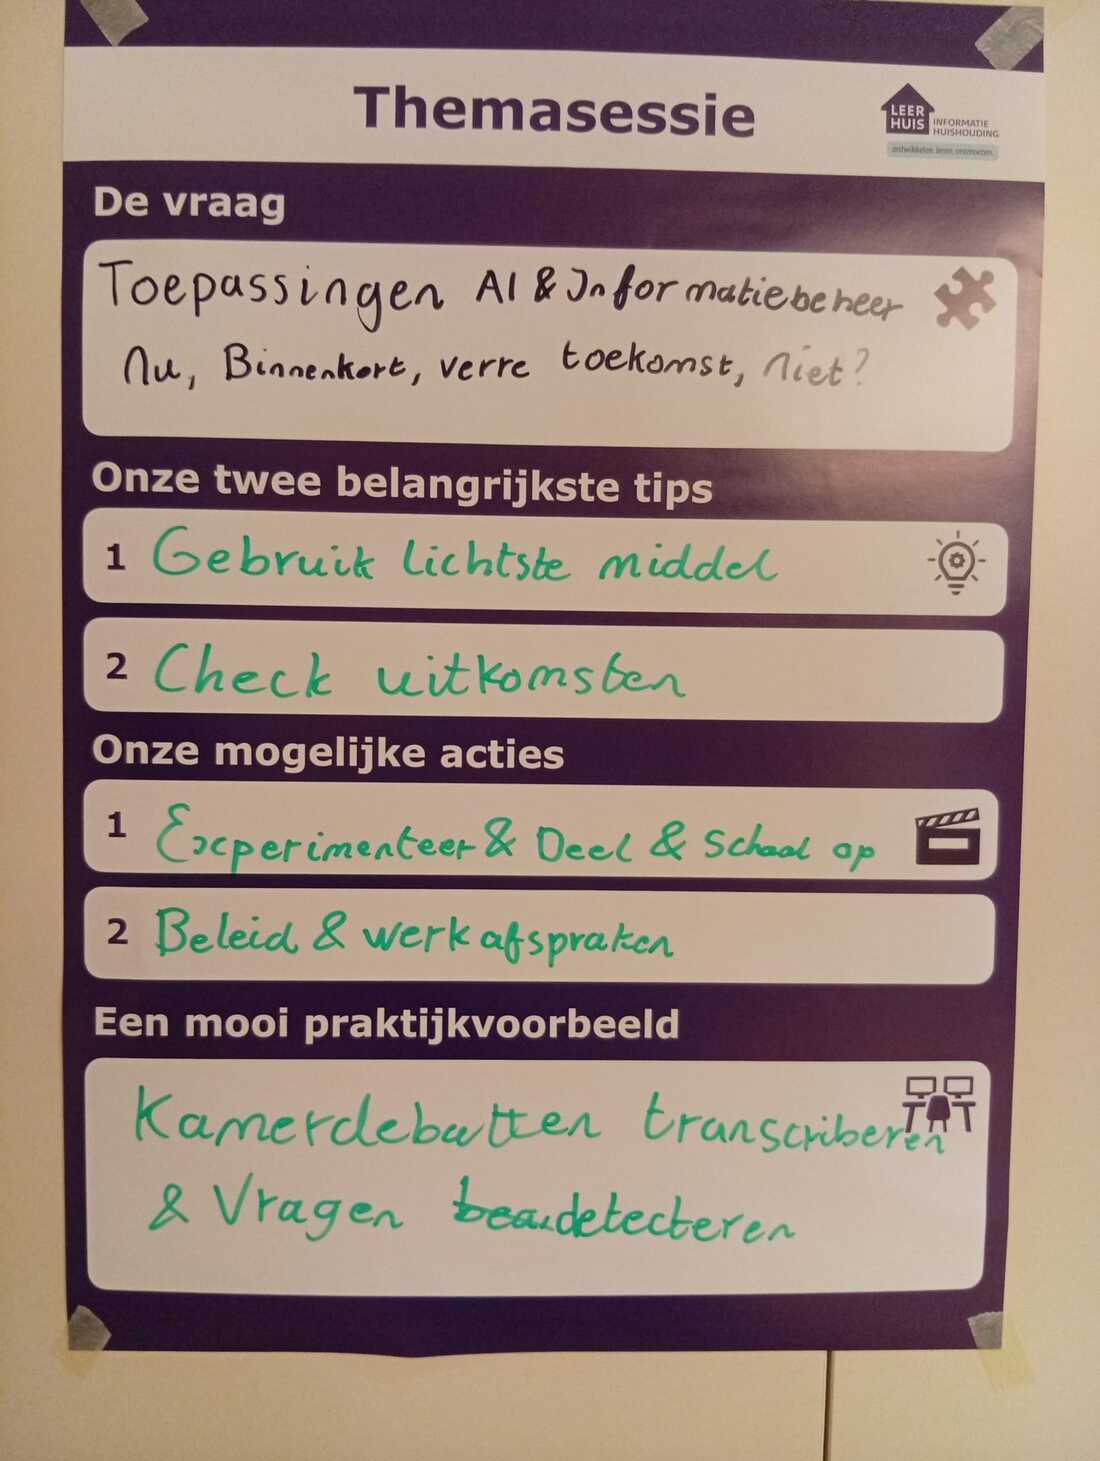 Themasessie
LEER
HUIS
INFORMATIE
HUISHOUDING
ontwikkelen, leren, ontmoeten.
De vraag
Toepassingen AI & Informatiebeheer
nu, Binnenkort, verre toekomst, niet?
Onze twee belangrijkste tips
1 Gebruik lichtste middel
2 Check uitkomsten
Onze mogelijke acties
1 Experimenteer & Deel & Schaal op
2 Beleid & werkafspraken
Een mooi praktijkvoorbeeld
Kamerdebatten transcriberen
& Vragen detecteren